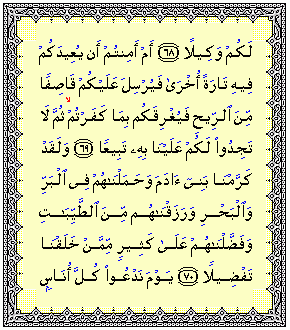 لَكُمْ وَكِيلًا ٦٨ أَمْ أَمِنتُمْ أَن يُعِيدَكُمْ
فِيهِ تَارَةً أُخْرَىٰ فَيُرْسِلَ عَلَيْكُمْ قَاصِفًا
مِّنَ ٱلرِّيحِ فَيُغْرِقَكُم بِمَا كَفَرْتُمْ ۙ ثُمَّ لَا
تَجِدُوا۟ لَكُمْ عَلَيْنَا بِهِۦ تَبِيعًا ٦٩ وَلَقَدْ
كَرَّمْنَا بَنِىٓ ءَادَمَ وَحَمَلْنَـٰهُمْ فِى ٱلْبَرِّ
وَٱلْبَحْرِ وَرَزَقْنَـٰهُم مِّنَ ٱلطَّيِّبَـٰتِ
وَفَضَّلْنَـٰهُمْ عَلَىٰ كَثِيرٍ مِّمَّنْ خَلَقْنَا
تَفْضِيلًا ٧٠ يَوْمَ نَدْعُوا۟ كُلَّ أُنَاسٍۭ